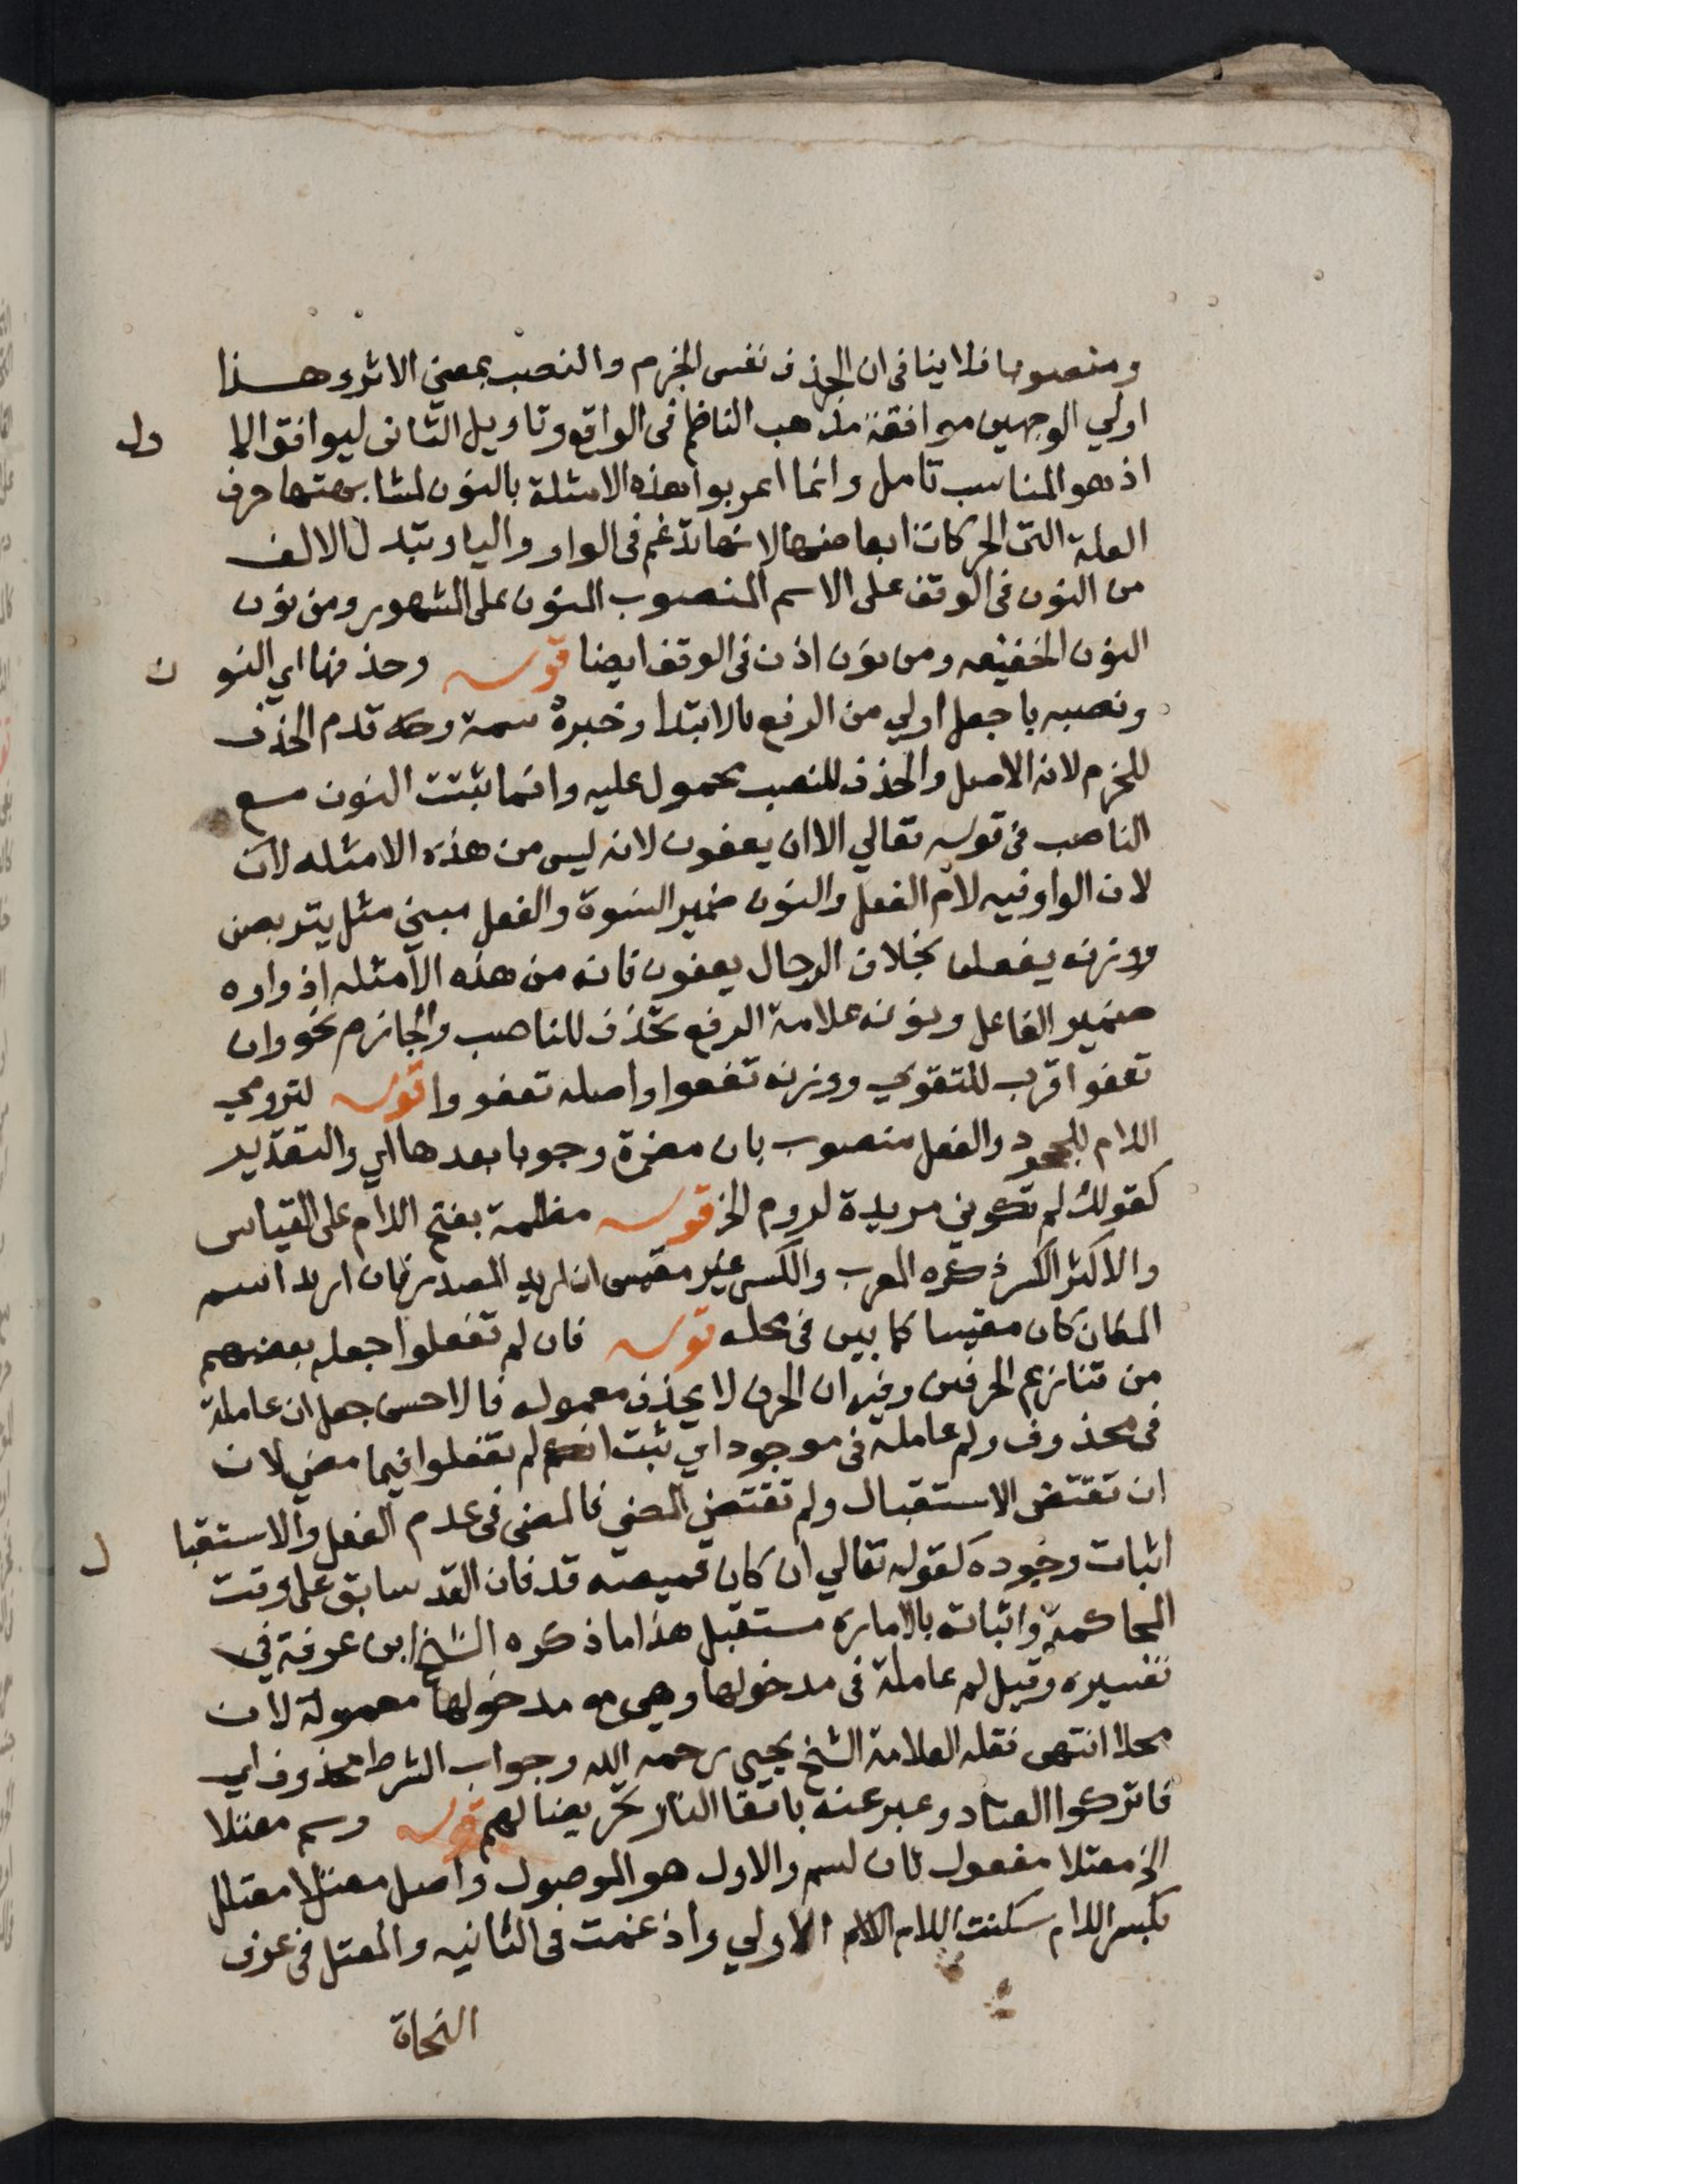 ومنصوبا فلا ينافى ان الحذف نفس الجزم والنصب بمعني الاثر وهذا
اولي الوجهين موافقة مذهب الناظم فى الواقع وتاويل الثانى ليوافق الا ول
اذ هو المناسب تامل وانما اعربوا هذه الامثلة بالنون لمشابهتها حرف
العلة التى الحركات ابعاضها لانها تدغم فى الواو واليا وتبدل الالف
من النون فى الوقف على الاسم المنصوب المنون على المشهور ومن نون
النون الخفيفه ومن نون اذن فى الوقف ايضا قوله وحذفها اي النو ن
ونصبه باجعل اولي من الرفع بالابتدا وخبره سمة وحد قدم الحذف
للجزم لانه الاصل والحذف للنصب محمول عليه وانما ثبتت النون مع
الناصب فى قوله تعالي الا ان يعفون لانه ليس من هذه الامثله لان
لان الواو فيه لام الفعل والنون ضمير النسوة والفعل مبني مثل يتربصن
ووزنه يفعلن بخلاف الرجال يعفون فانه من هذه الامثله اذ واوه
ضمير الفاعل ونونه علامة الرفع تحذف للناصب والجازم نحو وان
تعفو اقرب للتقوي ووزنه تفعوا واصله تعفووا قوله لترومي
اللام للجحود والفعل منصوب بان مضمرة وجوبا بعدها اي والتقدير
كقولك لم تكوني مريدة لروم الخ قوله مظلمة بفتح اللام على القياس
والاكثر الكسر ذكره المعرب والكسر غير مقيس ان اريد المصدر فان اريد اسم
المكان كان مقيسا كما بين فى محله قوله فان لم تفعلوا جعله بعضهم
من تنازع الحرفين وفيه ان الحرف لا يحذف معموله فالاحسن جعل ان عاملة
فى محذوف ولم عاملة فى موجود اي ثبت انكم لم تفعلوا فيما مضي لان
ان تقتضى الاستقبال ولم تقتضي المضي فالمضى فى عدم الفعل والاستقبا ل
اثبات وجوده كقوله تعالي ان كان قميصه قد فان القد سابق على وقت
المحاكمة واثباته بالاماره مستقبل هذا ما ذكره الشيخ ابن عرفة في
تفسيره وقيل لم عاملة فى مدخولها وهى مع مدخولها معمولة لان
محلا انتهى نقله العلامة الشيخ يحيى رحمه الله وجواب الشرط محذوف اي
فاتركوا العناد وعبر عنه باتقا النار تحريضا لهم قوله وسم معتلا
الخ معتلا مفعول ثان لسم والاول هو الموصول واصل معتلا معتلل
بكسر اللام سكنت اللام اللام الاولي وادغمت فى الثانيه والمعتل فى عرف
النحاة